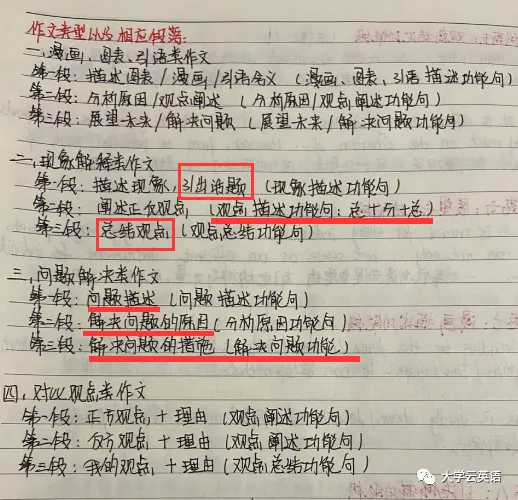 作文类型以及相应框架:
一、漫画、图表、引语类作文
第一段: 描述图表/漫画/引语含义(漫画、图表、引语描述功能句)
第二段: 分析原因/观点阐述(分析原因/观点阐述功能句)
第三段: 展望未来/解决问题(展望未来/解决问题功能句)
二、现象解释类作文
第一段: 描述现象,引出话题(现象描述功能句)
第二段: 阐述正反观点(观点描述功能句: 总+分+总)
第三段: 总结观点(观点总结功能句)
三、问题解决类作文
第一段: 问题描述(问题描述功能句)
第二段: 解决问题的原因(分析原因功能句)
第三段: 解决问题的措施(解决问题功能)
四、对比观点类作文
第一段: 正方观点,+理由(观点阐述功能句)
第二段: 反方观点,+理由(观点阐述功能句)
第三段: 我的观点,+理由(观点总结功能句)
大学云英语